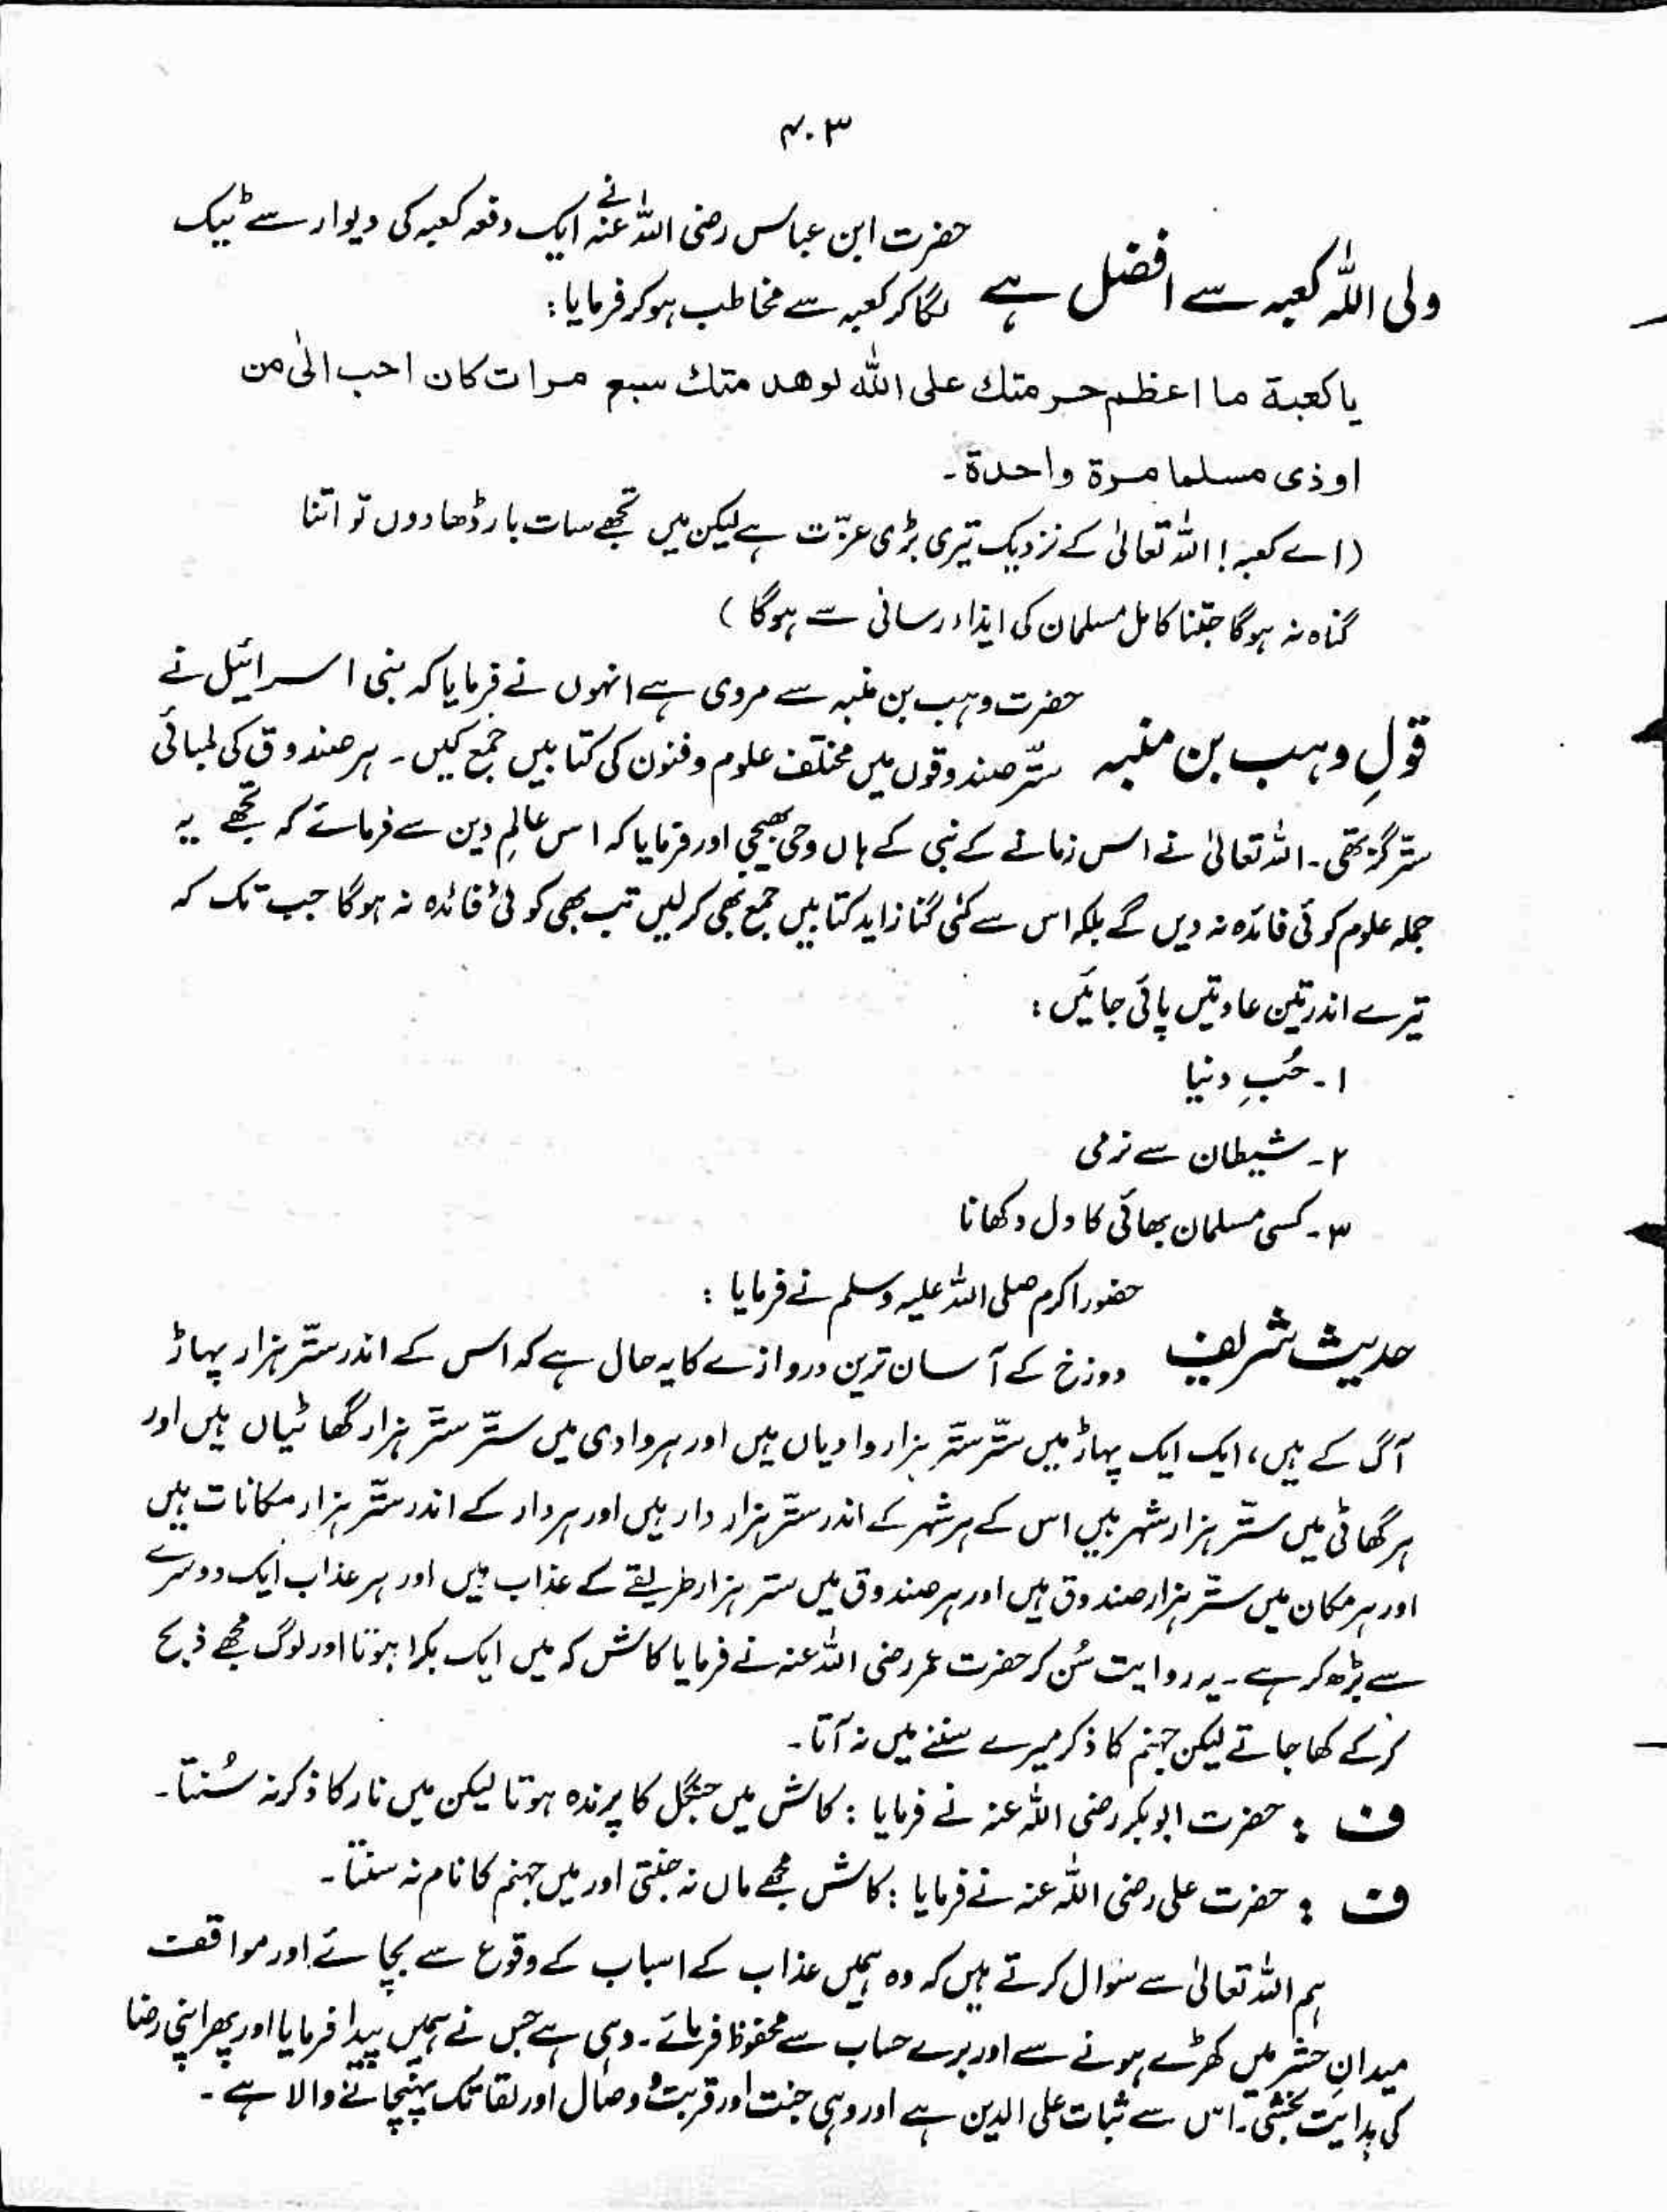 ۴۰۳
حضرت ابن عباس رضی اللہ عنہ نے ایک دفعہ کعبہ کی دیوار سے ٹیک
ولی اللہ کعبہ سے افضل ہے لگا کر کعبہ سے مخاطب ہو کر فرمایا :
یا کعبة ما اعظم حرمتك علی اللہ لوهدمتك سبع مرات کان احب الیٰ من
اوذی مسلما مرة واحدة۔
(اے کعبہ! اللہ تعالیٰ کے نزدیک تیری بڑی عزّت ہے لیکن میں تجھے سات بار ڈھادوں تو اتنا
گناہ نہ ہوگا جتنا کامل مسلمان کی ایذاء رسانی سے ہوگا)
حضرت وہب بن منبہ سے مروی ہے انہوں نے فرمایا کہ بنی اسرائیل نے
قولِ وہب بن منبہ ستّر صندوقوں میں مختلف علوم و فنون کی کتابیں جمع کیں۔ ہر صندوق کی لمبائی
ستّر گز تھی۔ اللہ تعالیٰ نے اس زمانے کے نبی کے ہاں وحی بھیجی اور فرمایا کہ اس عالمِ دین سے فرمائے کہ تجھے یہ
جملہ علوم کوئی فائدہ نہ دیں گے بلکہ اس سے کئی گنا زاید کتابیں جمع بھی کرلیں تب بھی کوئی فائدہ نہ ہوگا جب تک کہ
تیرے اندر تین عادتیں پائی جائیں :
۱۔ حُبِ دنیا
۲۔ شیطان سے نرمی
۳۔ کسی مسلمان بھائی کا دل دکھانا
حضور اکرم صلی اللہ علیہ وسلم نے فرمایا :
حدیث شریف دوزخ کے آسان ترین دروازے کا یہ حال ہے کہ اس کے اندر ستّر ہزار پہاڑ
آگ کے ہیں، ایک ایک پہاڑ میں ستّر ستّر ہزار وادیاں ہیں اور ہر وادی میں ستّر ستّر ہزار گھاٹیاں ہیں اور
ہر گھاٹی میں ستّر ہزار شہر ہیں اس کے ہر شہر کے اندر ستّر ہزار دار ہیں اور ہر دار کے اندر ستّر ہزار مکانات ہیں
اور ہر مکان میں ستّر ہزار صندوق ہیں اور ہر صندوق میں ستر ہزار طریقے کے عذاب ہیں اور ہر عذاب ایک دوسرے
سے بڑھ کر ہے۔ یہ روایت سُن کر حضرت عمر رضی اللہ عنہ نے فرمایا کاش کہ میں ایک بکرا ہوتا اور لوگ مجھے ذبح
کرکے کھا جاتے لیکن جہنم کا ذکر میرے سننے میں نہ آتا۔
ف : حضرت ابوبکر رضی اللہ عنہ نے فرمایا : کاش میں جنگل کا پرندہ ہوتا لیکن میں نار کا ذکر نہ سُنتا۔
ف : حضرت علی رضی اللہ عنہ نے فرمایا : کاش مجھے ماں نہ جنتی اور میں جہنم کا نام نہ سنتا۔
ہم اللہ تعالیٰ سے سوال کرتے ہیں کہ وہ ہمیں عذاب کے اسباب کے وقوع سے بچائے اور مواقعت
میدانِ حشر میں کھڑے ہونے سے اور برے حساب سے محفوظ فرمائے۔ وہی ہے جس نے ہمیں پیدا فرمایا اور پھر اپنی رضا
کی ہدایت بخشی۔ اس سے ثبات علی الدین ہے اور وہی جنت اور قربت و وصال اور لقا تک پہنچانے والا ہے۔